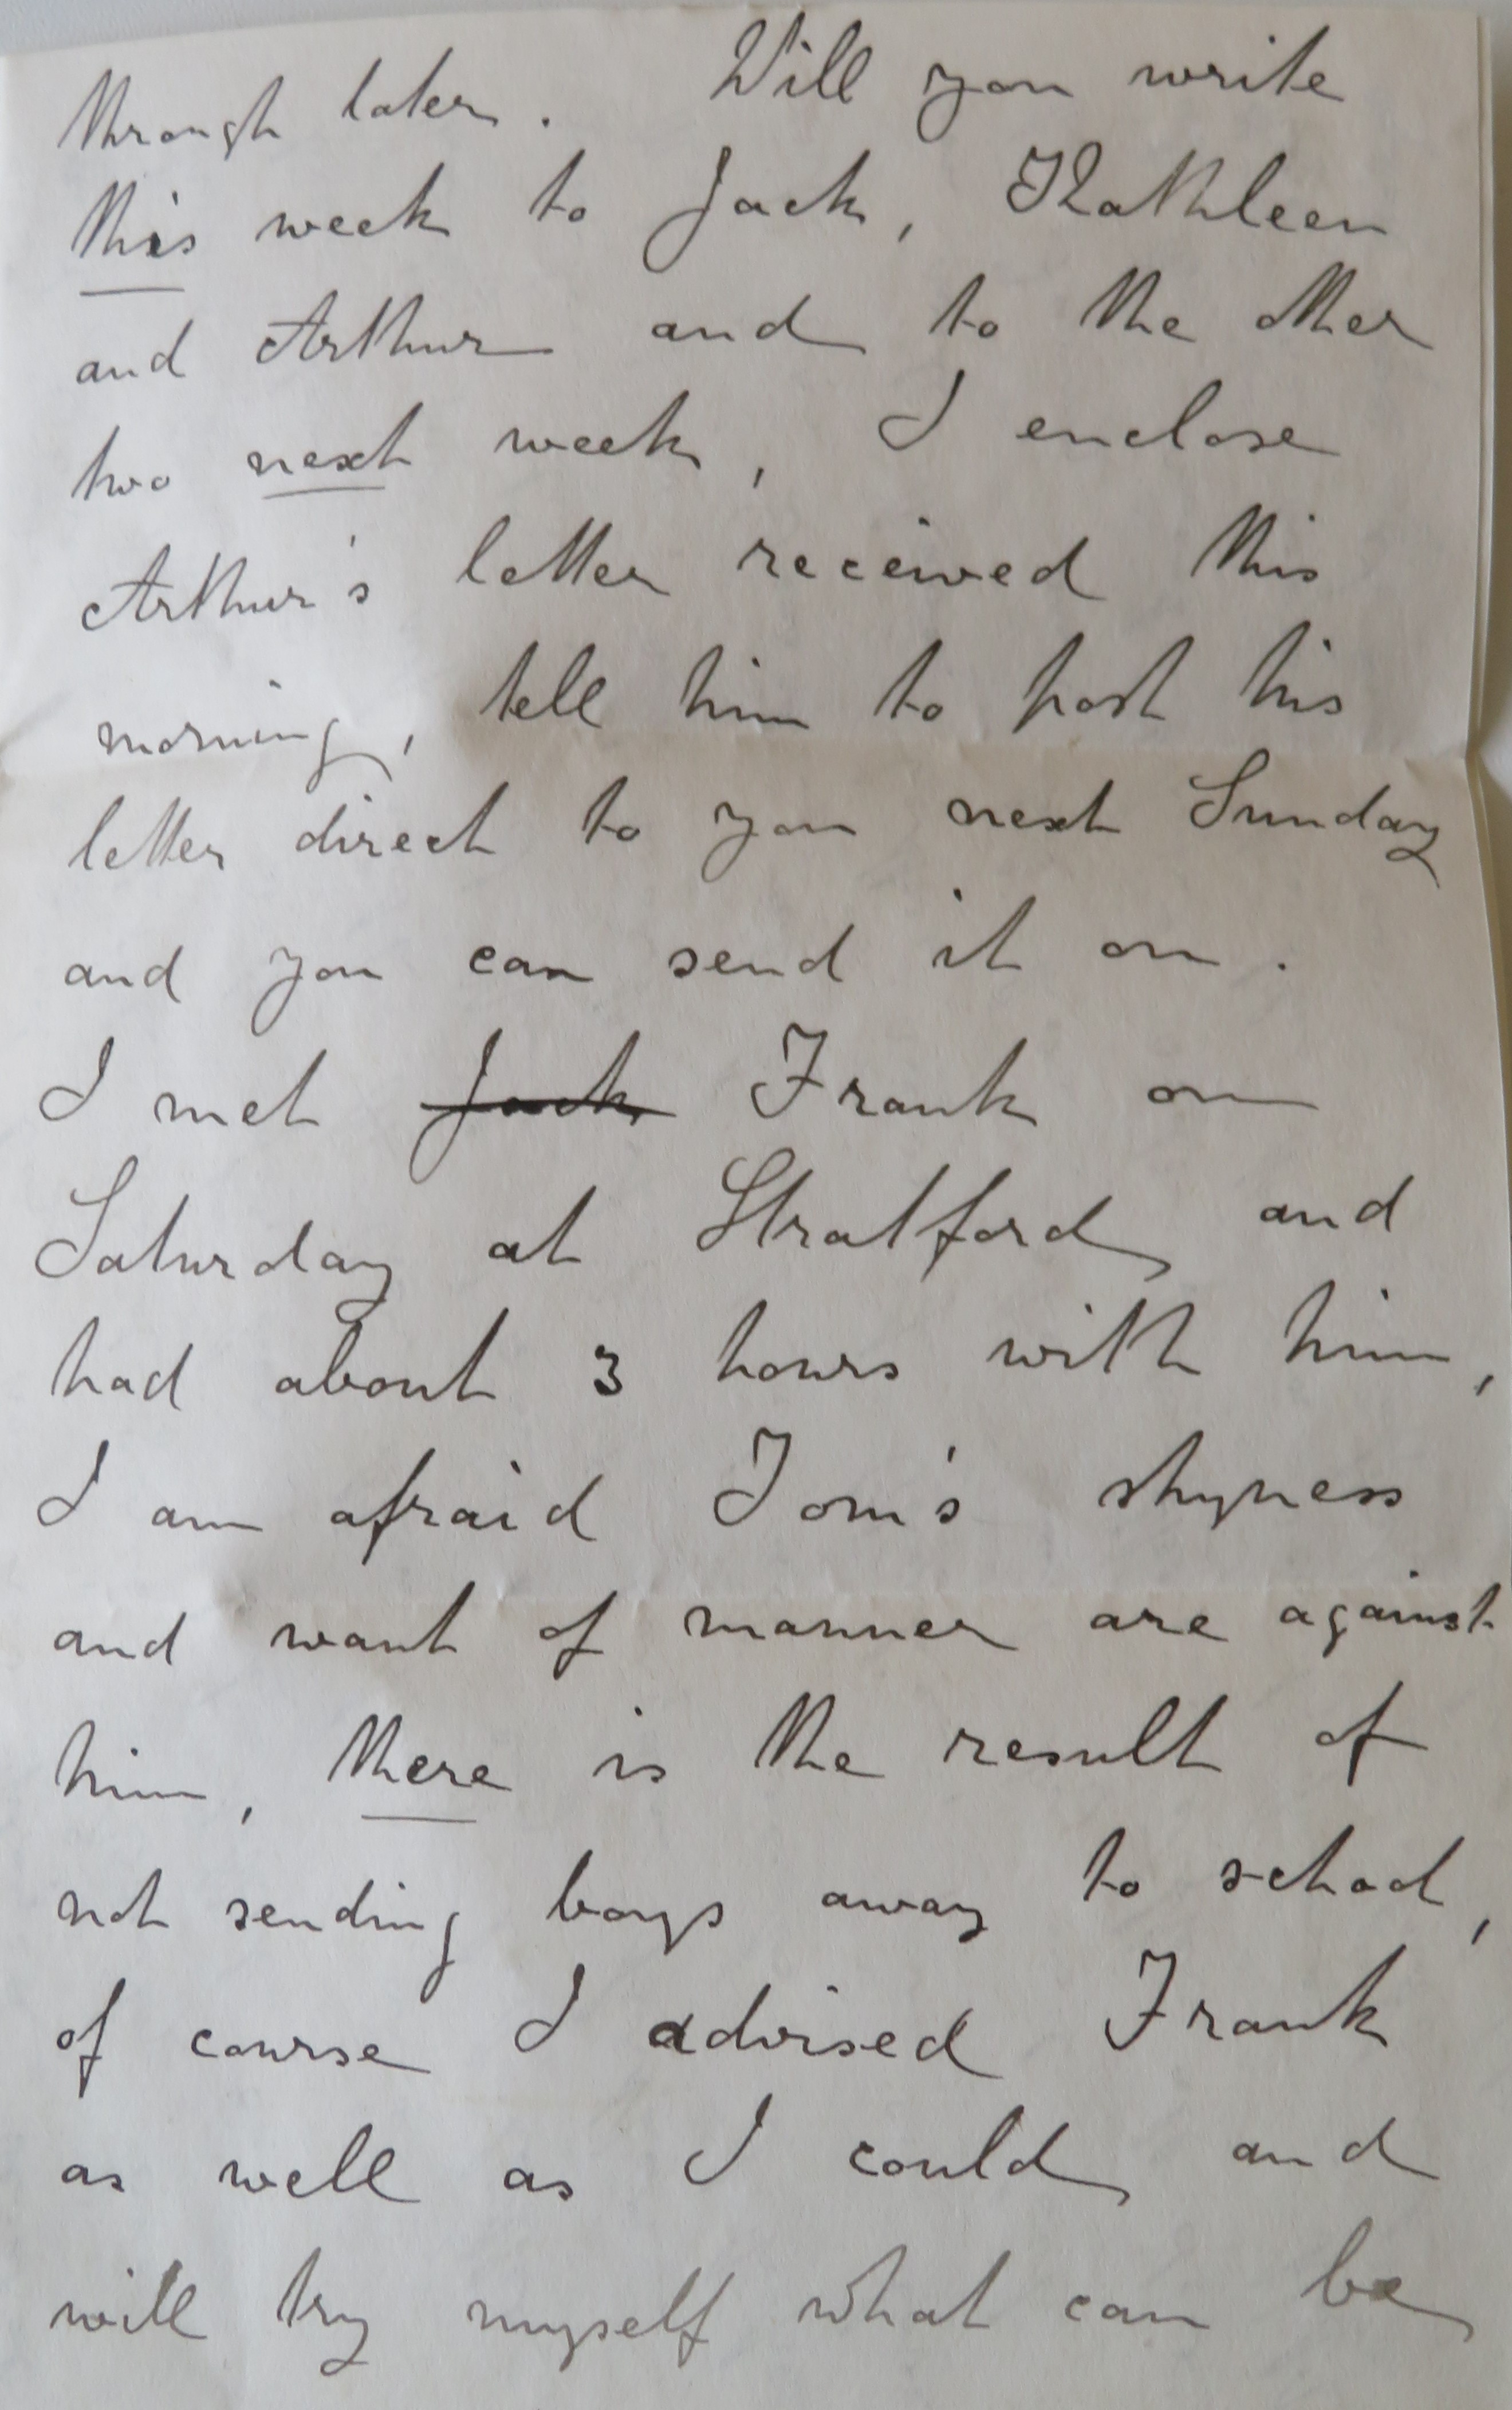 through later. Will you write
this week to Jack, Kathleen
and Arthur and to the other
two next week, I enclose
Arthur's letter received this
morning, tell him to post his
letter direct to you next Sunday
and you can send it on.
I met Jack Frank on
Saturday at Stratford and
had about 3 hours with him,
I am afraid Tom's shyness
and want of manner are against
him, there is the result of
not sending boys away to school,
of course I advised Frank
as well as I could and
will try myself what can be